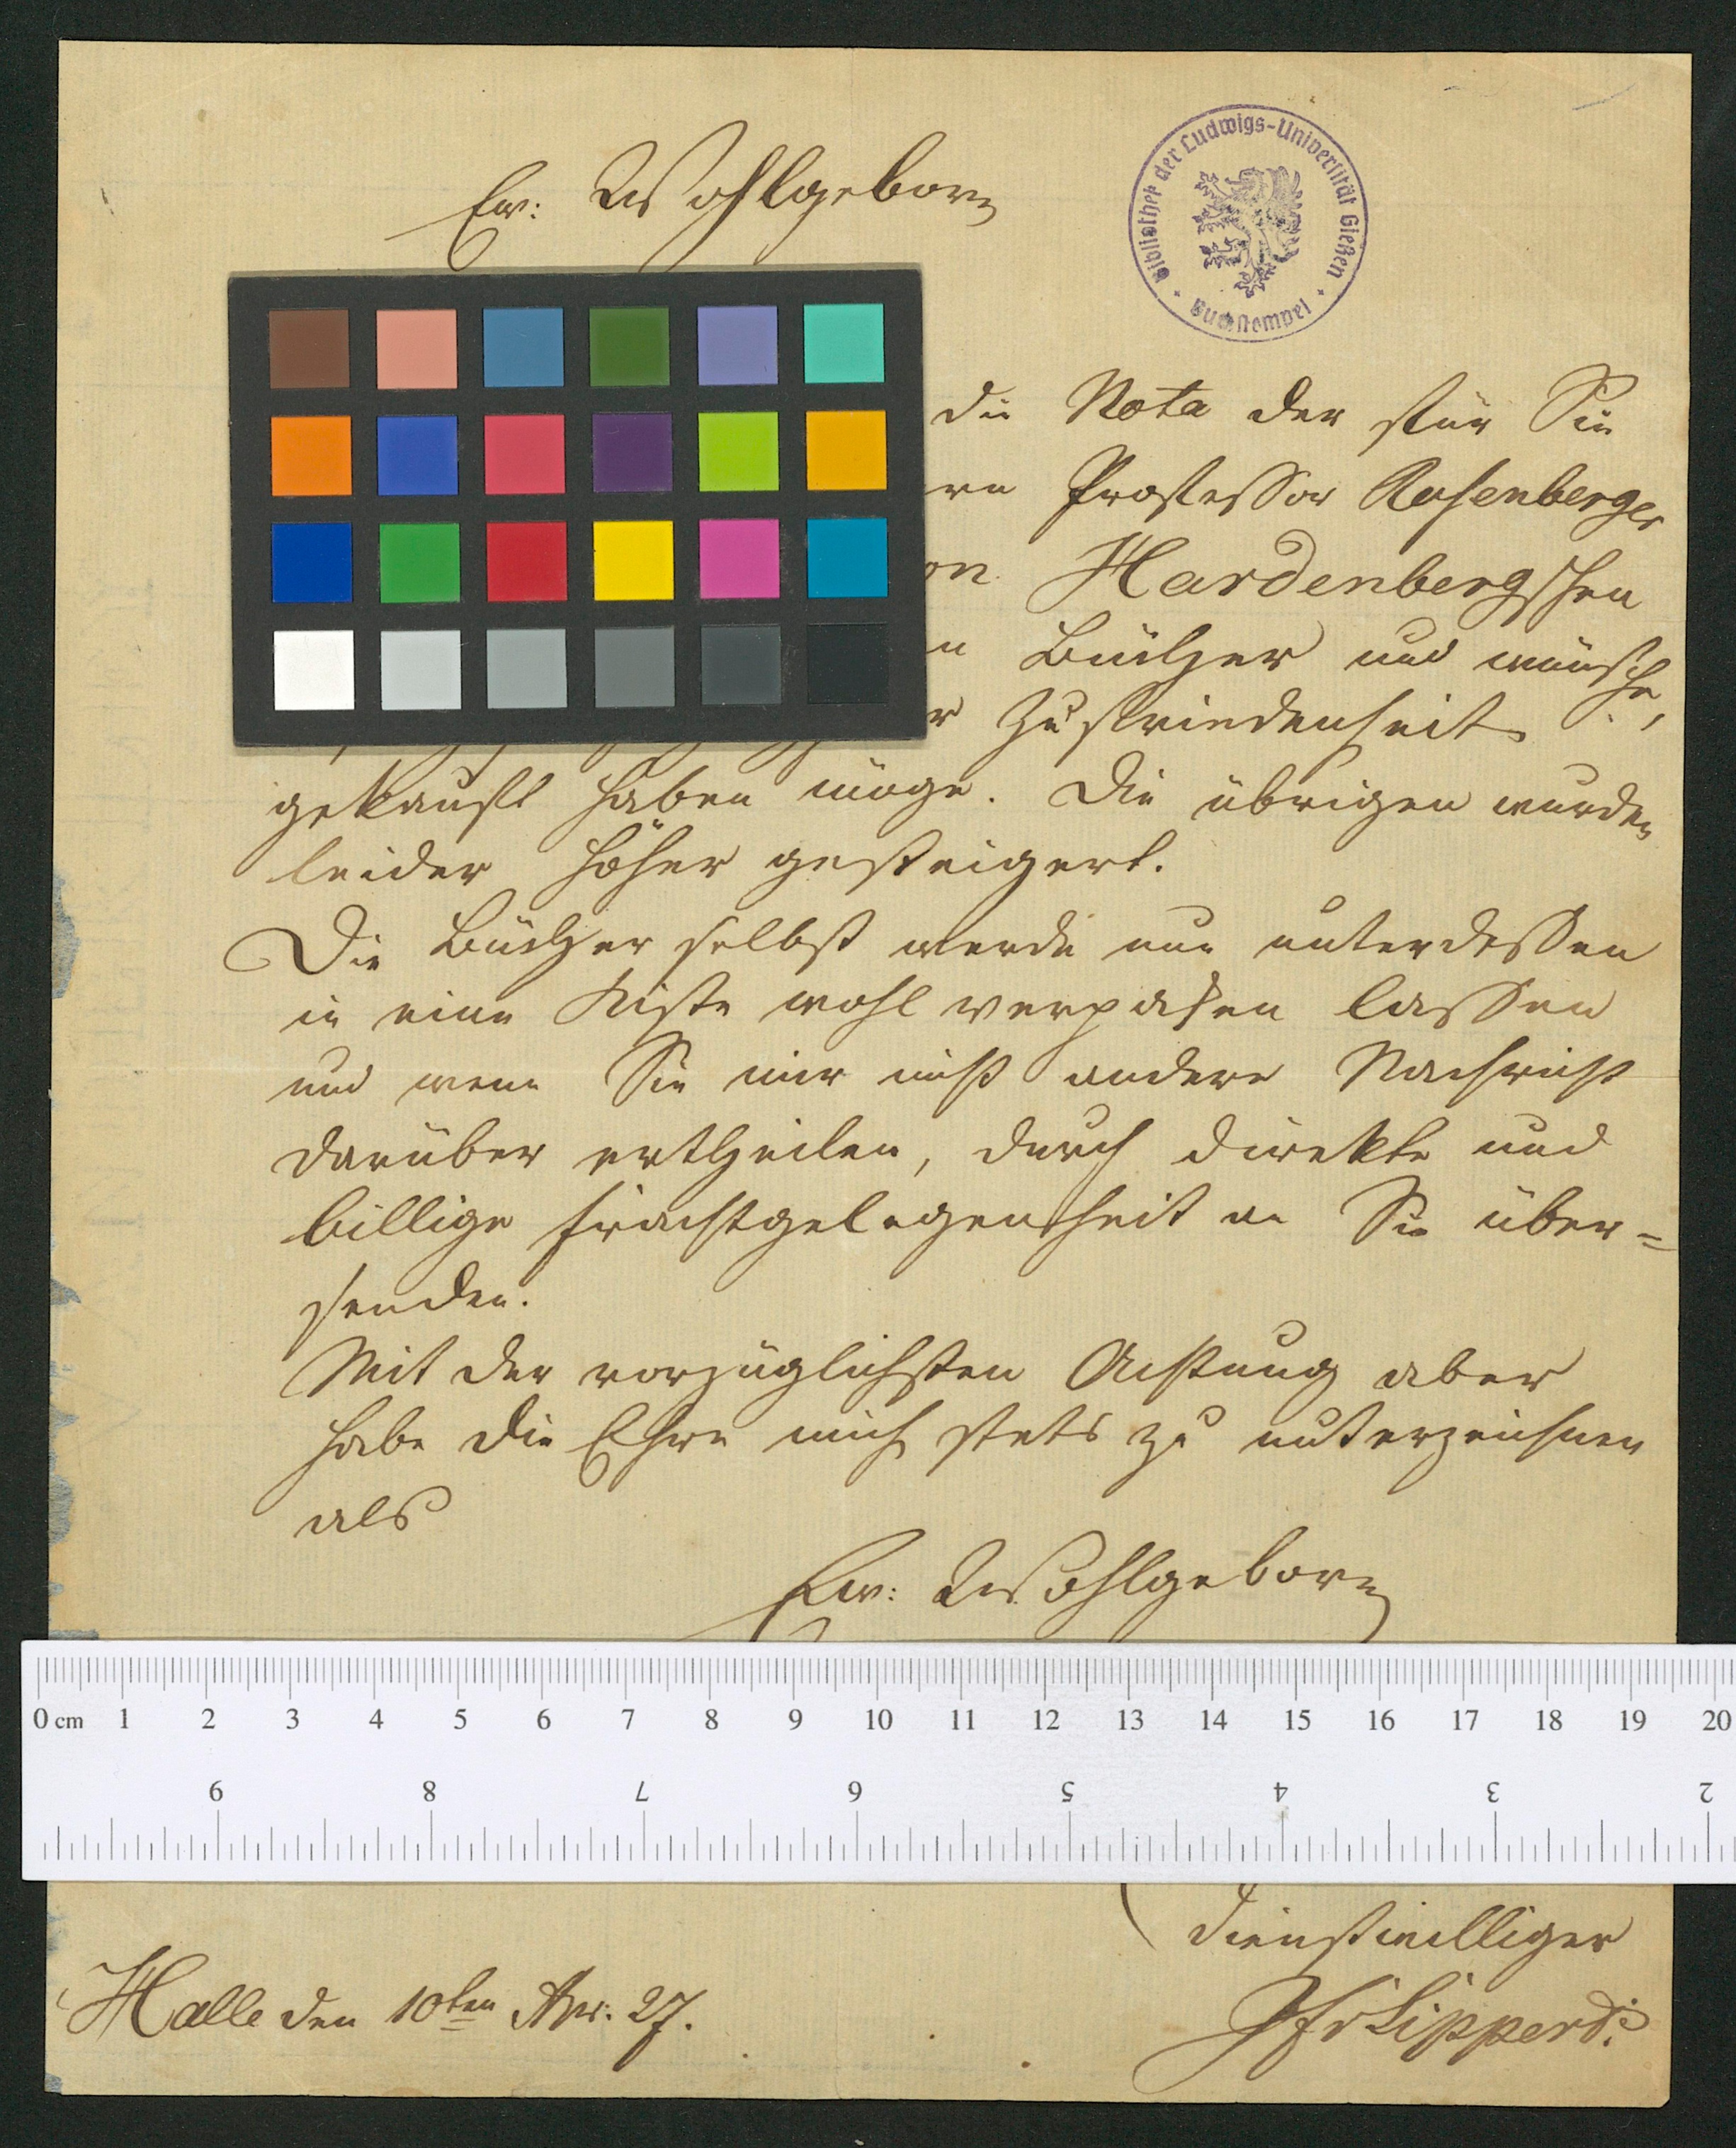 Ew: Wohlgeborn
Bibliothek der Ludwigs-Universität Gießen
Buchstempel
die Nota der für Sie
rn Professor Rosenberger
on Hardenbergschen
n Bücher und wünsche,
r Zufriedenheit
gekauft haben möge. Die übrigen wurden
leider höher gesteigert.
Die Bücher selbst werde nun unterdessen
in eine Kiste wohl verpaken lassen
und wenn Sie mir nicht andere Nachricht
darüber ertheilen, durch direkte und
billige Frachtgelegenheit an Sie über=
senden.
Mit der vorzüglichsten Achtung aber
habe die Ehre mich stets zu unterzeichnen
als
Ew: Wohlgeborn
0 cm 1 2 3 4 5 6 7 8 9 10 11 12 13 14 15 16 17 18 19 20
9 8 7 6 5 4 3 2
dienstwilliger
Halle den 10ten Apr. 27.
Lippert